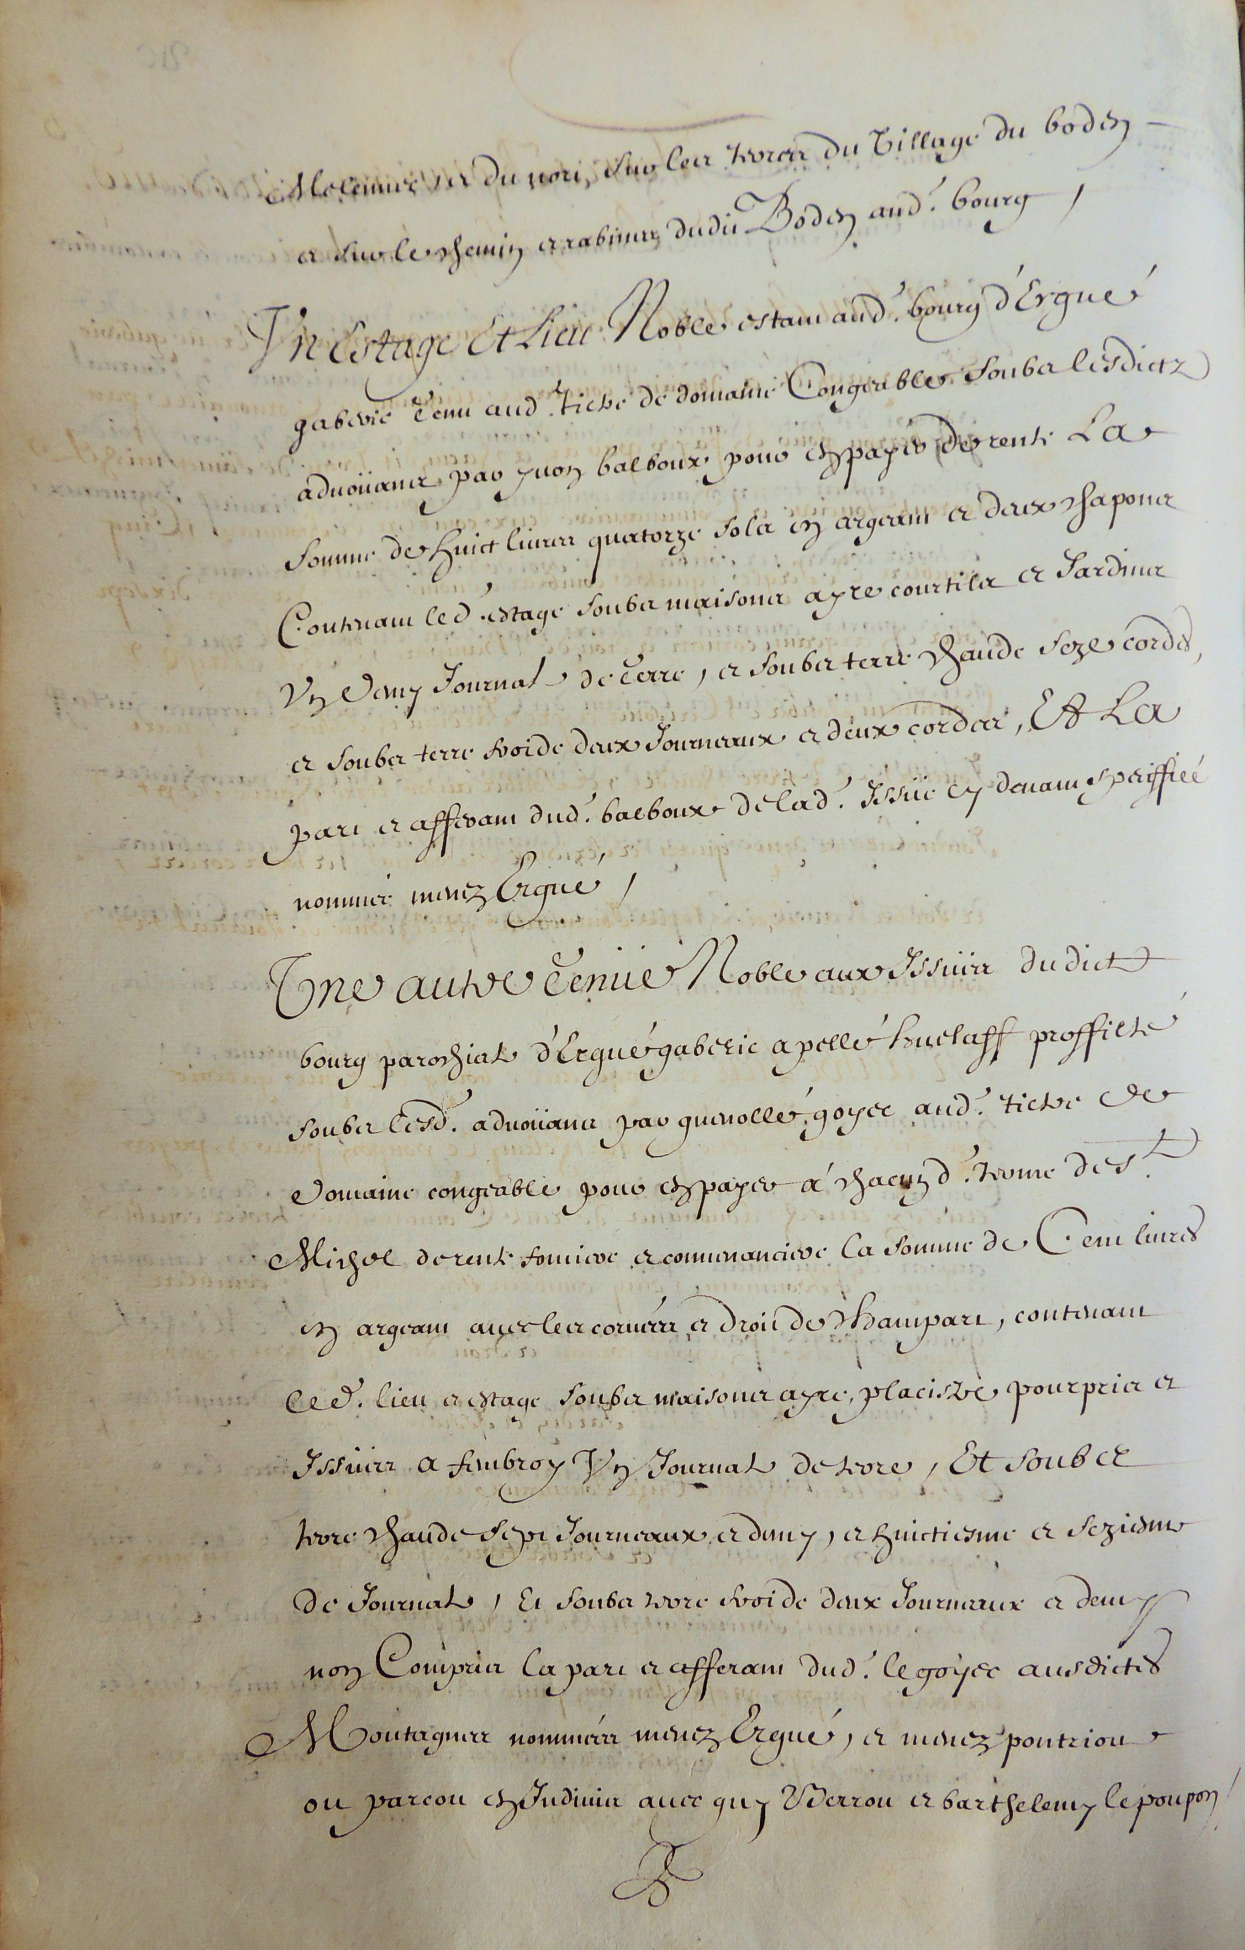 du nort, sur les terres du Village du boden
et sur le chemin et rabines dudit Boden aud. bourg,
Un Estage Et Lieu Noble estant aud. bourg d'Ergué
gaberic Tenu aud. tictre de domaine Congeable soubz lesdictz
aduoüans par yuon balboux pour en payer de rente La
somme de huict liures quatorze solz en argeant et deux chapons
Contenant led. estage soubz maisons ayre courtilz et Jardins
Un demy Journal de Terre, et soubz terre chaude seze cordes,
et soubz terre froide deux Journeaux et deux cordes, Et La
part et afferant dud. balboux de lad. Issüe cy deuant speiffiée
nommée menez Ergué,
Une autre Tenüe Noble aux Issües du dict
bourg parochial d'Ergué gaberic apellé huelaff proffitté
soubz lesd. aduoüans par guenollé goyec aud. tictre de
domaine congeable pour en payer à chacun d. terme de St.
Michel de rente fonciere et conuenanciere la somme de Cent liures
en argeant auec les coruées et droit de champart, contenant
led. lieu et estage soubz maisons ayre, placistre pourpris et
Issües a fembroy Un Journal de terre, Et soubz
terre chaude sept Journeaux et demy, et huictiesme et seziesme
de Journal, Et soubz terre froide deux Journeaux et demy
non Compris la part et afferant dud. le goyec ausdictes
Montagnes nommées menez Ergué, et menez pontriou
ou parcou en Indiuis auec guy Uderrou et barthelemy le poupon